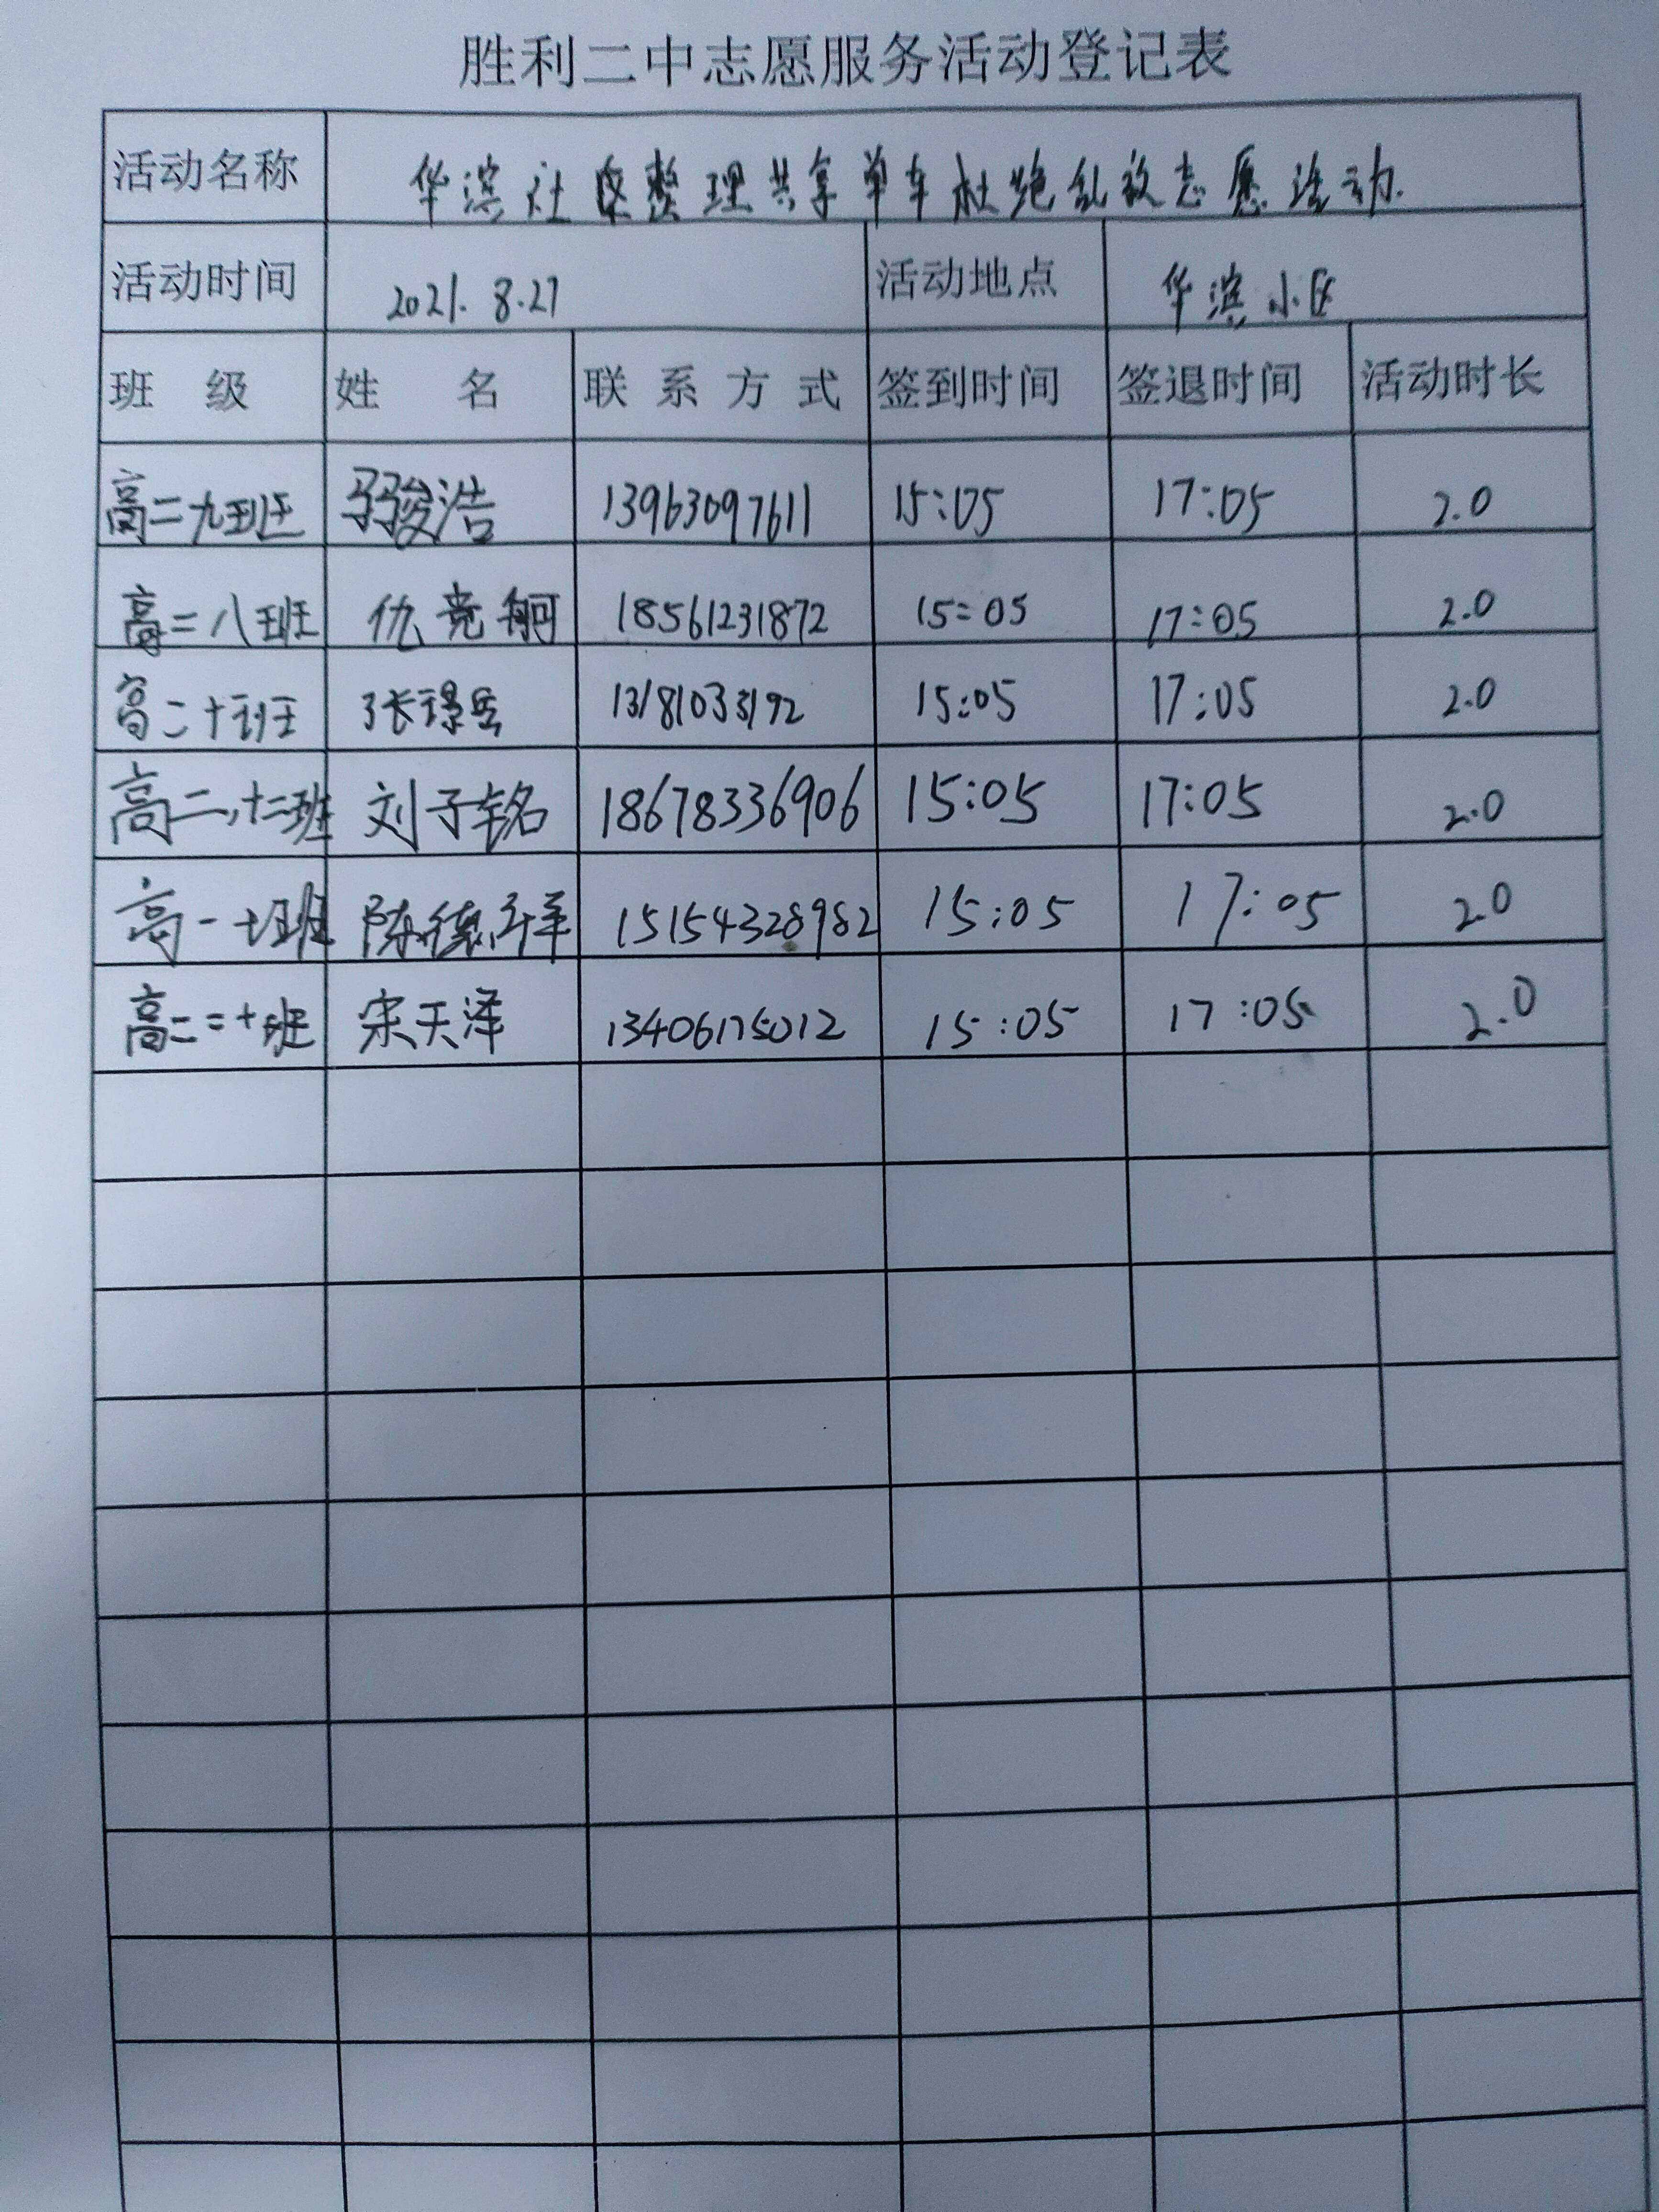 胜利二中志愿服务活动登记表
活动名称 华滨社区整理共享单车杜绝乱放志愿活动.
活动时间 2021.8.27 活动地点 华滨小区
班 级 姓 名 联 系 方 式 签到时间 签退时间 活动时长
高二九班 骏浩 13963097611 15:05 17:05 2.0
高二八班 仇竞舸 18561231872 15:05 17:05 2.0
高二十班 张璟岳 13181033192 15:05 17:05 2.0
高二,十二班 刘子铭 18678336906 15:05 17:05 2.0
高一七班 陈德 15154328982 15:05 17:05 2.0
高二二十班 宋天泽 13406175012 15:05 17:05 2.0